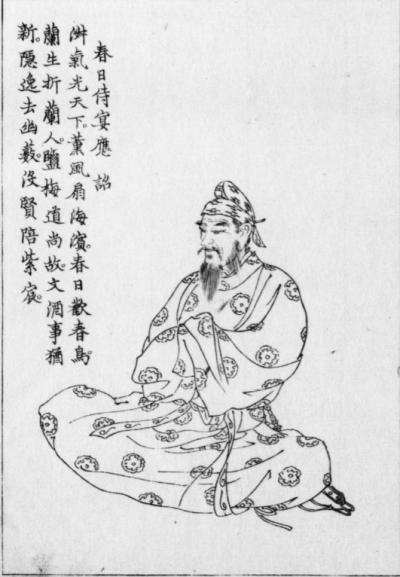 春日侍宴應詔
淑氣光天下。薰風扇海濱。春日歡春鳥。
蘭生折蘭人。鹽梅道尚故。文酒事猶
新。隱逸去幽藪。沒賢陪紫宸。